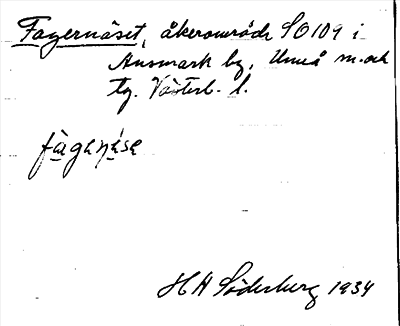 Fagernäset, åkerområde SO109 i
Ansmark by, Umeå m. och
tg. Västerb. l.
fàgeṇä́sa
H A Söderberg 1934